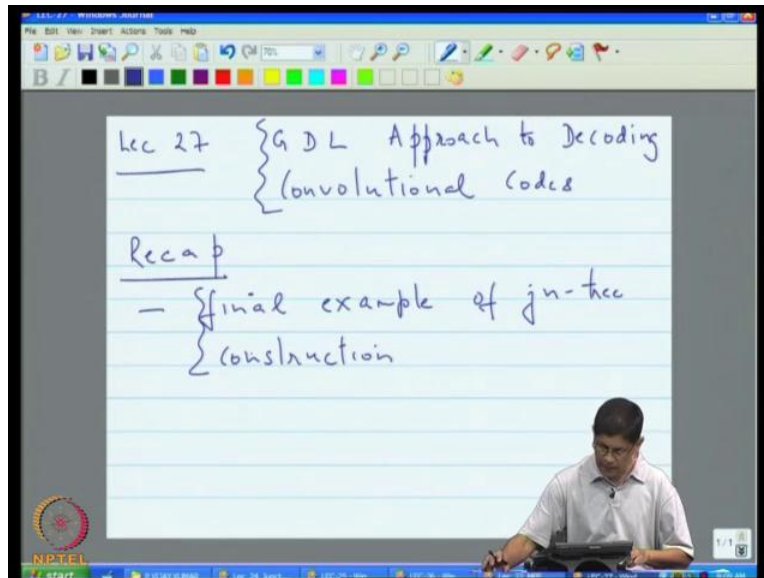 LEC-27 - Windows Journal
File Edit View Insert Actions Tools Help
70%
B I
Lec 27 GDL Approach to Decoding
Convolutional Codes
Recap
- final example of jn-tree
construction
1/1
NPTEL
start